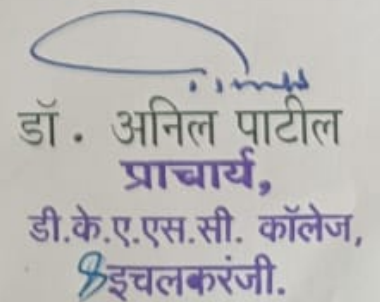 डॉ. अनिल पाटील
प्राचार्य,
डी.के.ए.एस.सी. कॉलेज,
इचलकरंजी.